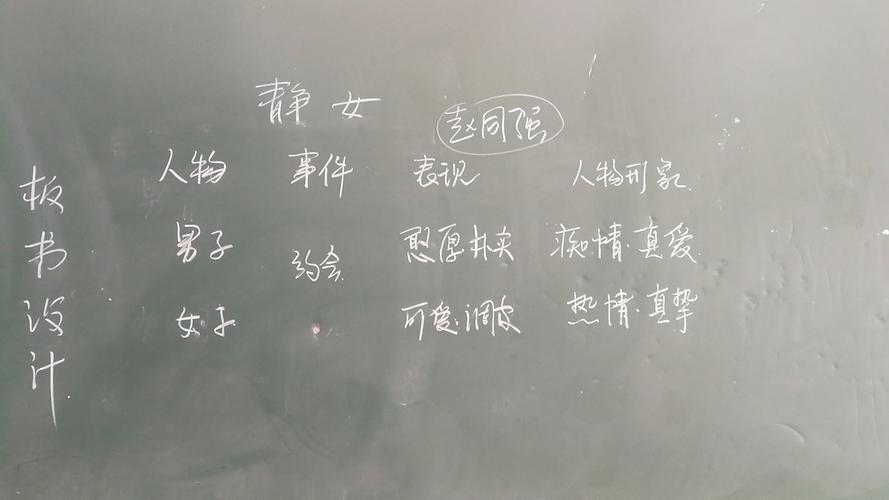 静女
赵同强
人物 事件 表现 人物形象
男子 约会 憨厚朴实 痴情·真爱
女子 可爱·调皮 热情·真挚
板书设计